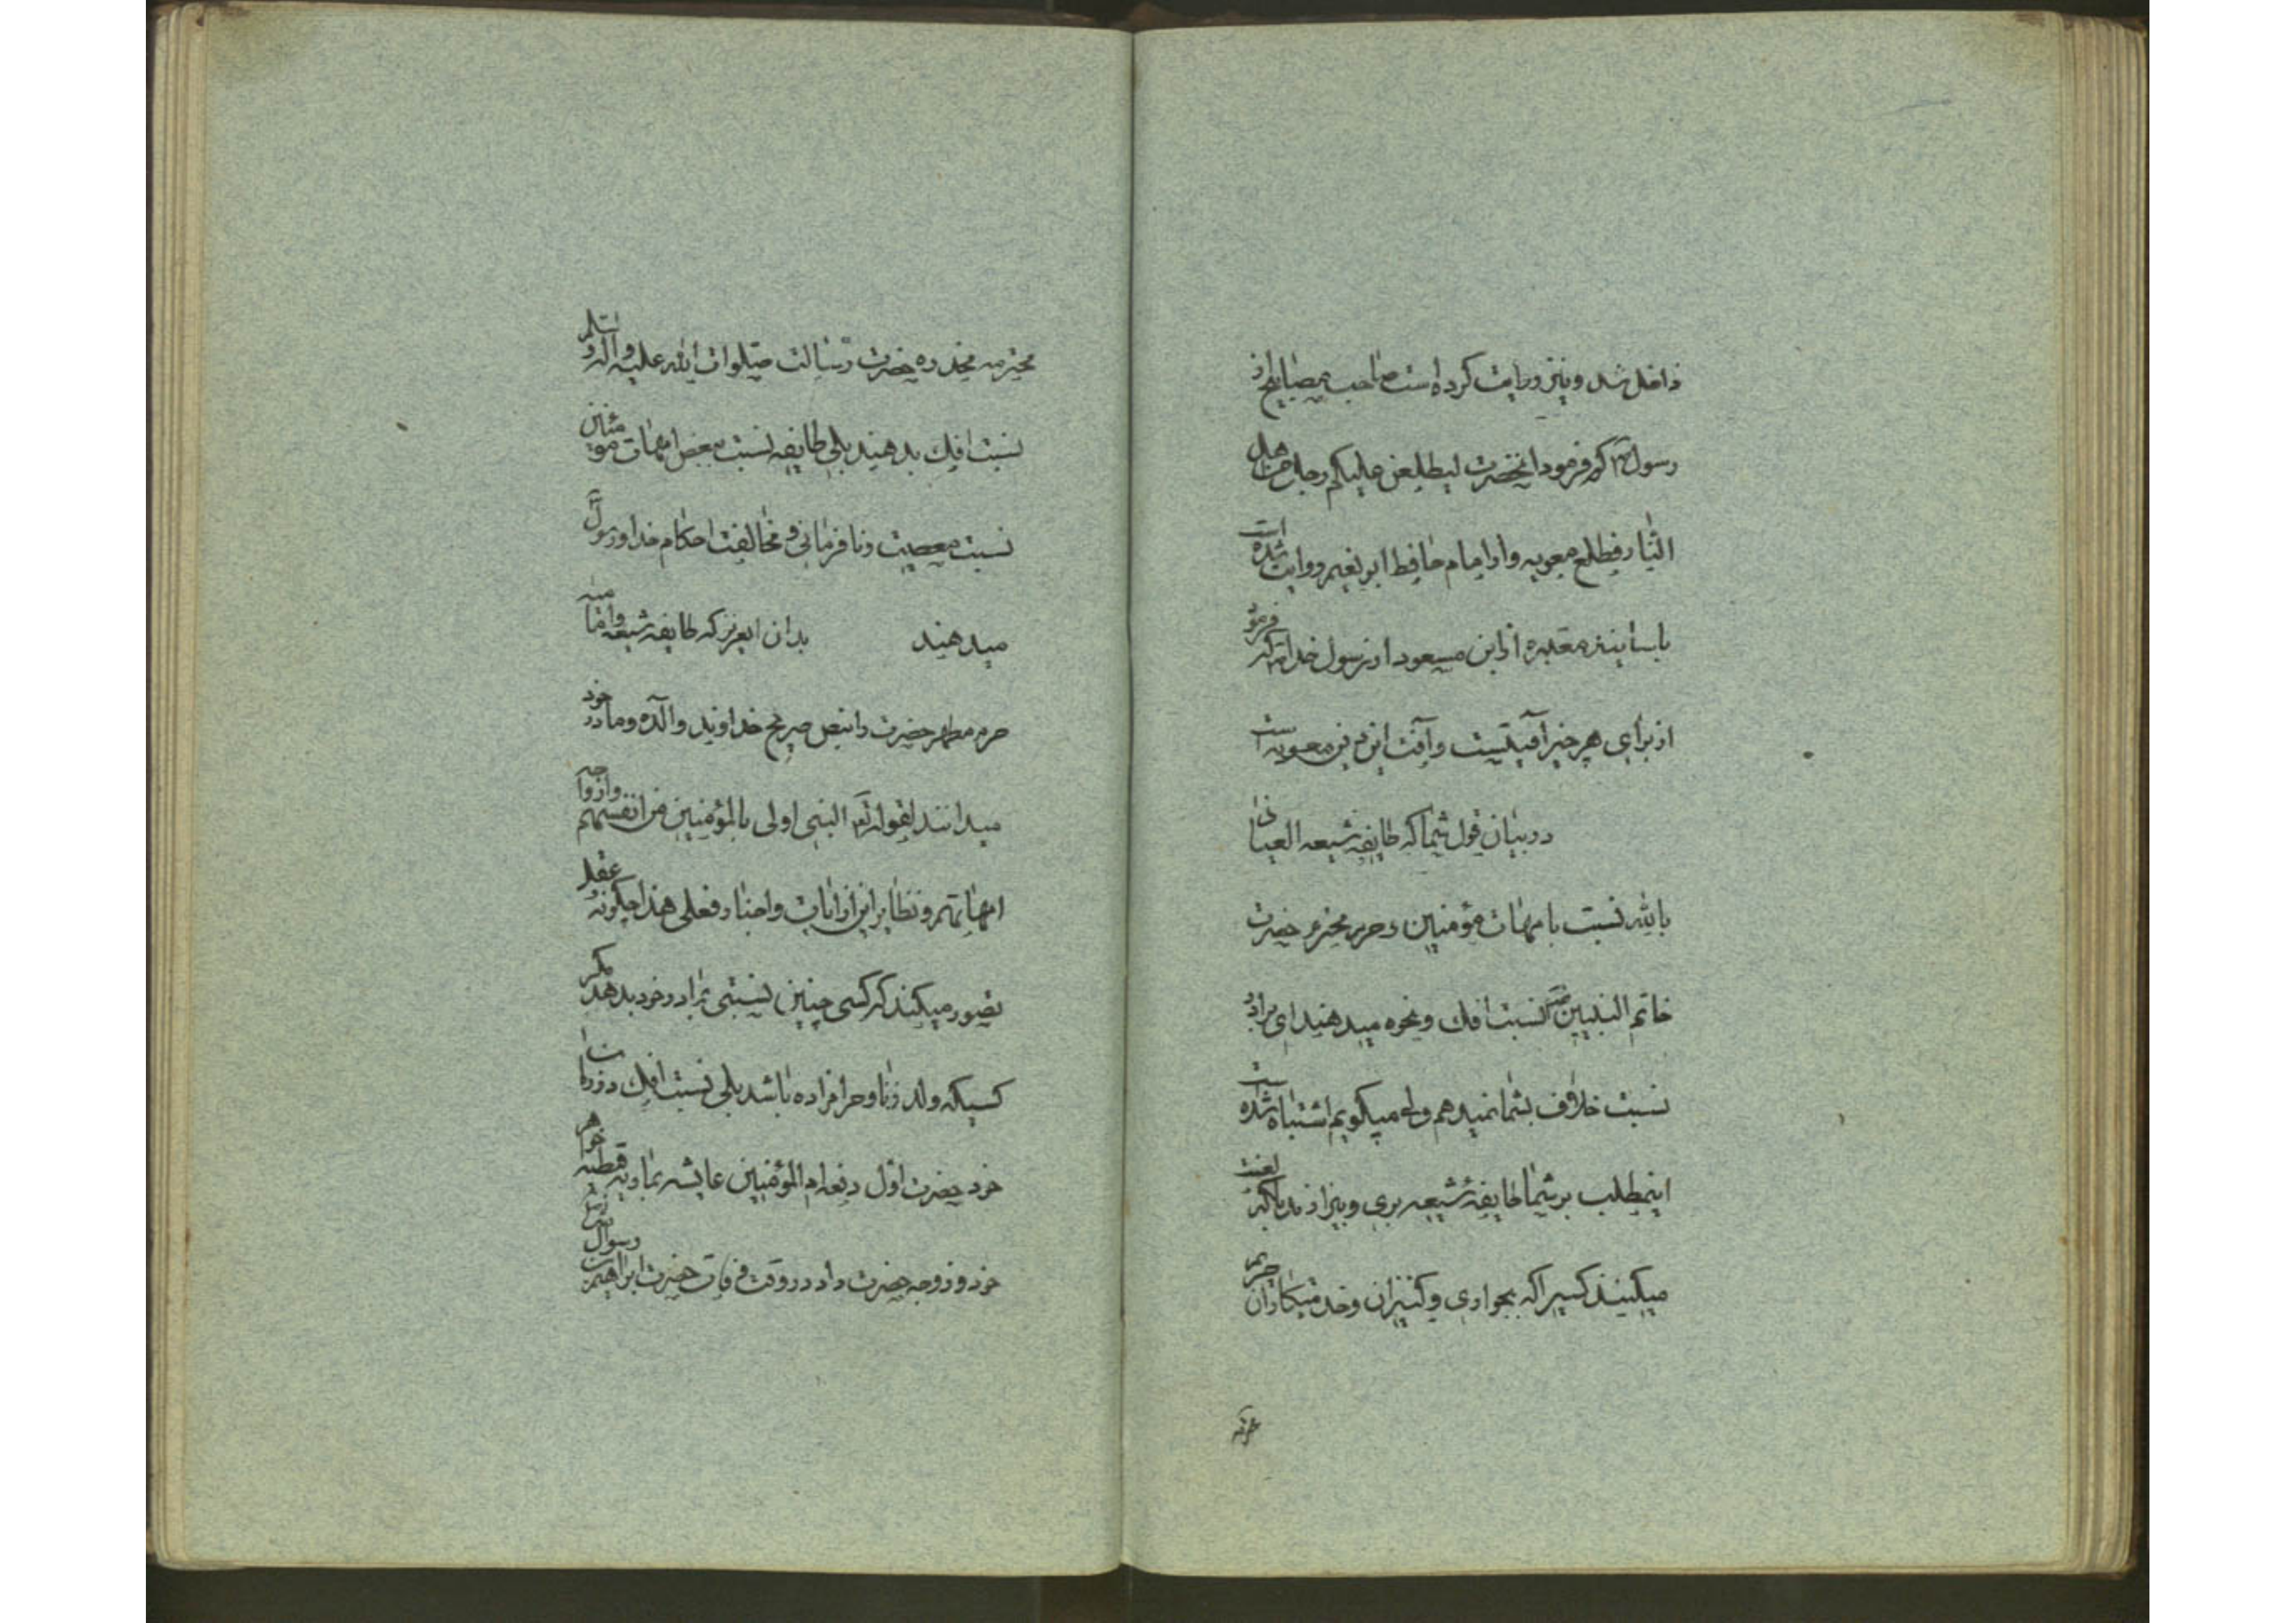 داخل شد و نیز روایت کرده است صاحب مصابیح از
رسول ص که فرمود انحضرت لیطلعن علیکم رجل من اهل
النار فطلع معویه و او امام حافظ ابو نعیم روایت شده است
باسانید معتبره از ابن مسعود از رسول خدا ص که فرمود
از برای هر چیز آفتیست و آفت این دین معویه است
در بیان قول شما که طایفه شیعه العیاذ
بالله نسبت بامهات مؤمنین و حرم محترم حضرت
خاتم النبیین ص نسبت افک و نحوه میدهند ای برادر
نسبت خلاف بشما نمیدهم ولی میگویم اشتباه شده است
اینمطلب بر شما طایفه شیعه بری و بیزارند بلکه لعنت
میکنند کسیرا که بجواری و کنیزان و خدمتکاران حرم
محترمه مخدره حضرت رسالت صلوات الله علیه و آله و سلم
نسبت افک بدهند بلی طایفه نسبت ببعض امهات مؤمنین
نسبت معصیت و نافرمانی و مخالفت احکام خدا و رسول
میدهند بدان ایعزیز که طایفه شیعه وامامیه
حرم مطهر حضرت را بنص صریح خداوند والده و مادر خود
میدانند لقوله تع النبی اولی بالمؤمنین من انفسهم وازواجه
امهاتهم و نظایر این از ایات و اخبار فعلی هذا چگونه عقل
تصور میکند که کسی چنین نسبتی بمادر خود بدهد مگر
کسیکه ولد زنا و حرامزاده باشد بلی نسبت افک در زمان
خود حضرت اول دفعه ام المؤمنین عایشه بماریه قبطیه خواهر
خود و زوجه حضرت داد در وقت وفات حضرت ابراهیم بن رسول